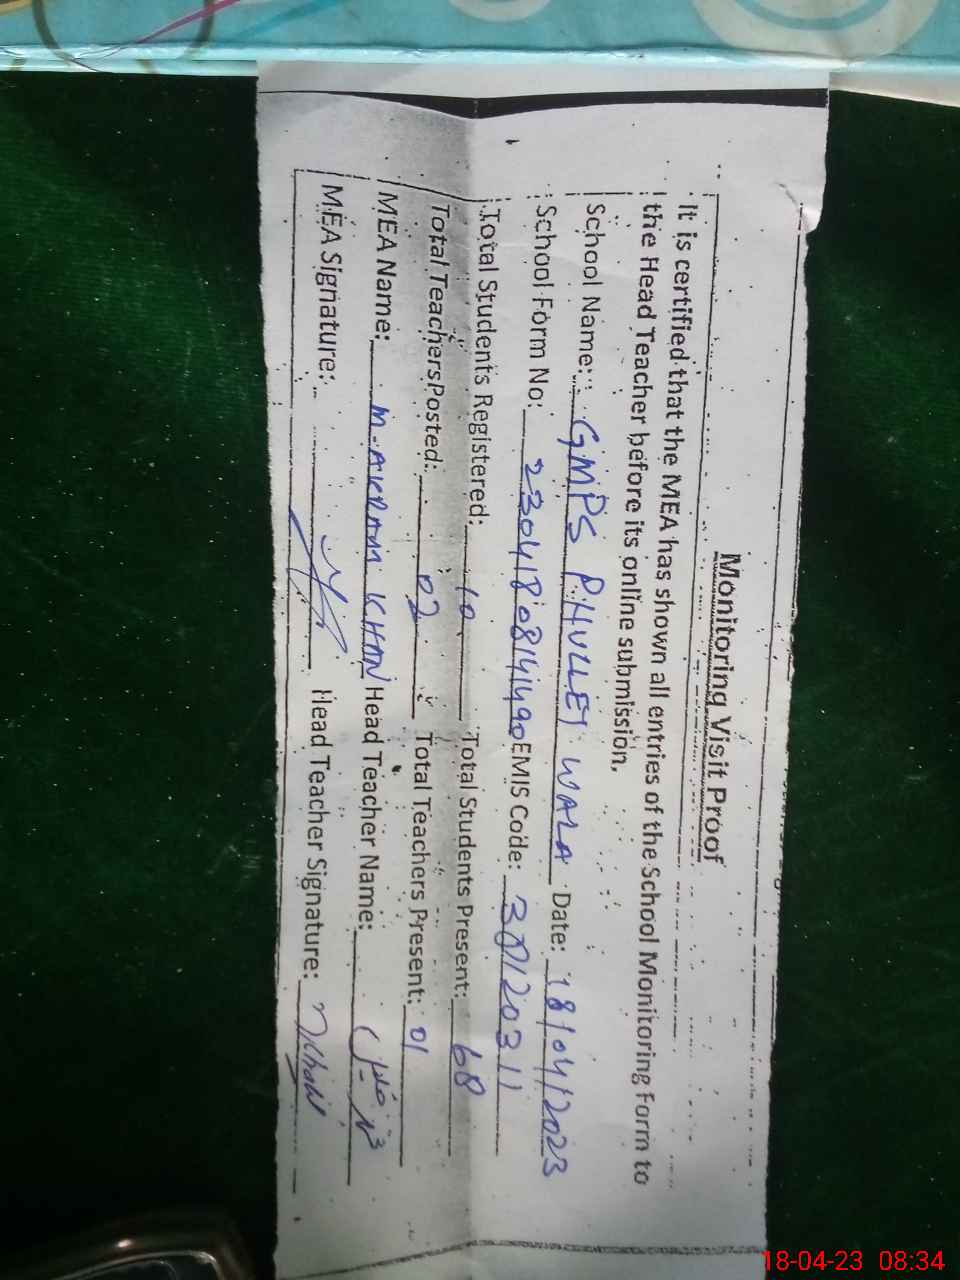 Monitoring Visit Proof
It is certified that the MEA has shown all entries of the School Monitoring Form to
the Head Teacher before its online submission.
School Name: GMPS PHULLEY WALA Date: 18/04/2023
School Form No: 2304180814490 EMIS Code: 38120311
Total Students Registered: 10 Total Students Present: 68
Total Teachers Posted: 02 Total Teachers Present: 01
MEA Name: M. AKRAM KHAN Head Teacher Name:
MEA Signature: Head Teacher Signature:
18-04-23 08:34